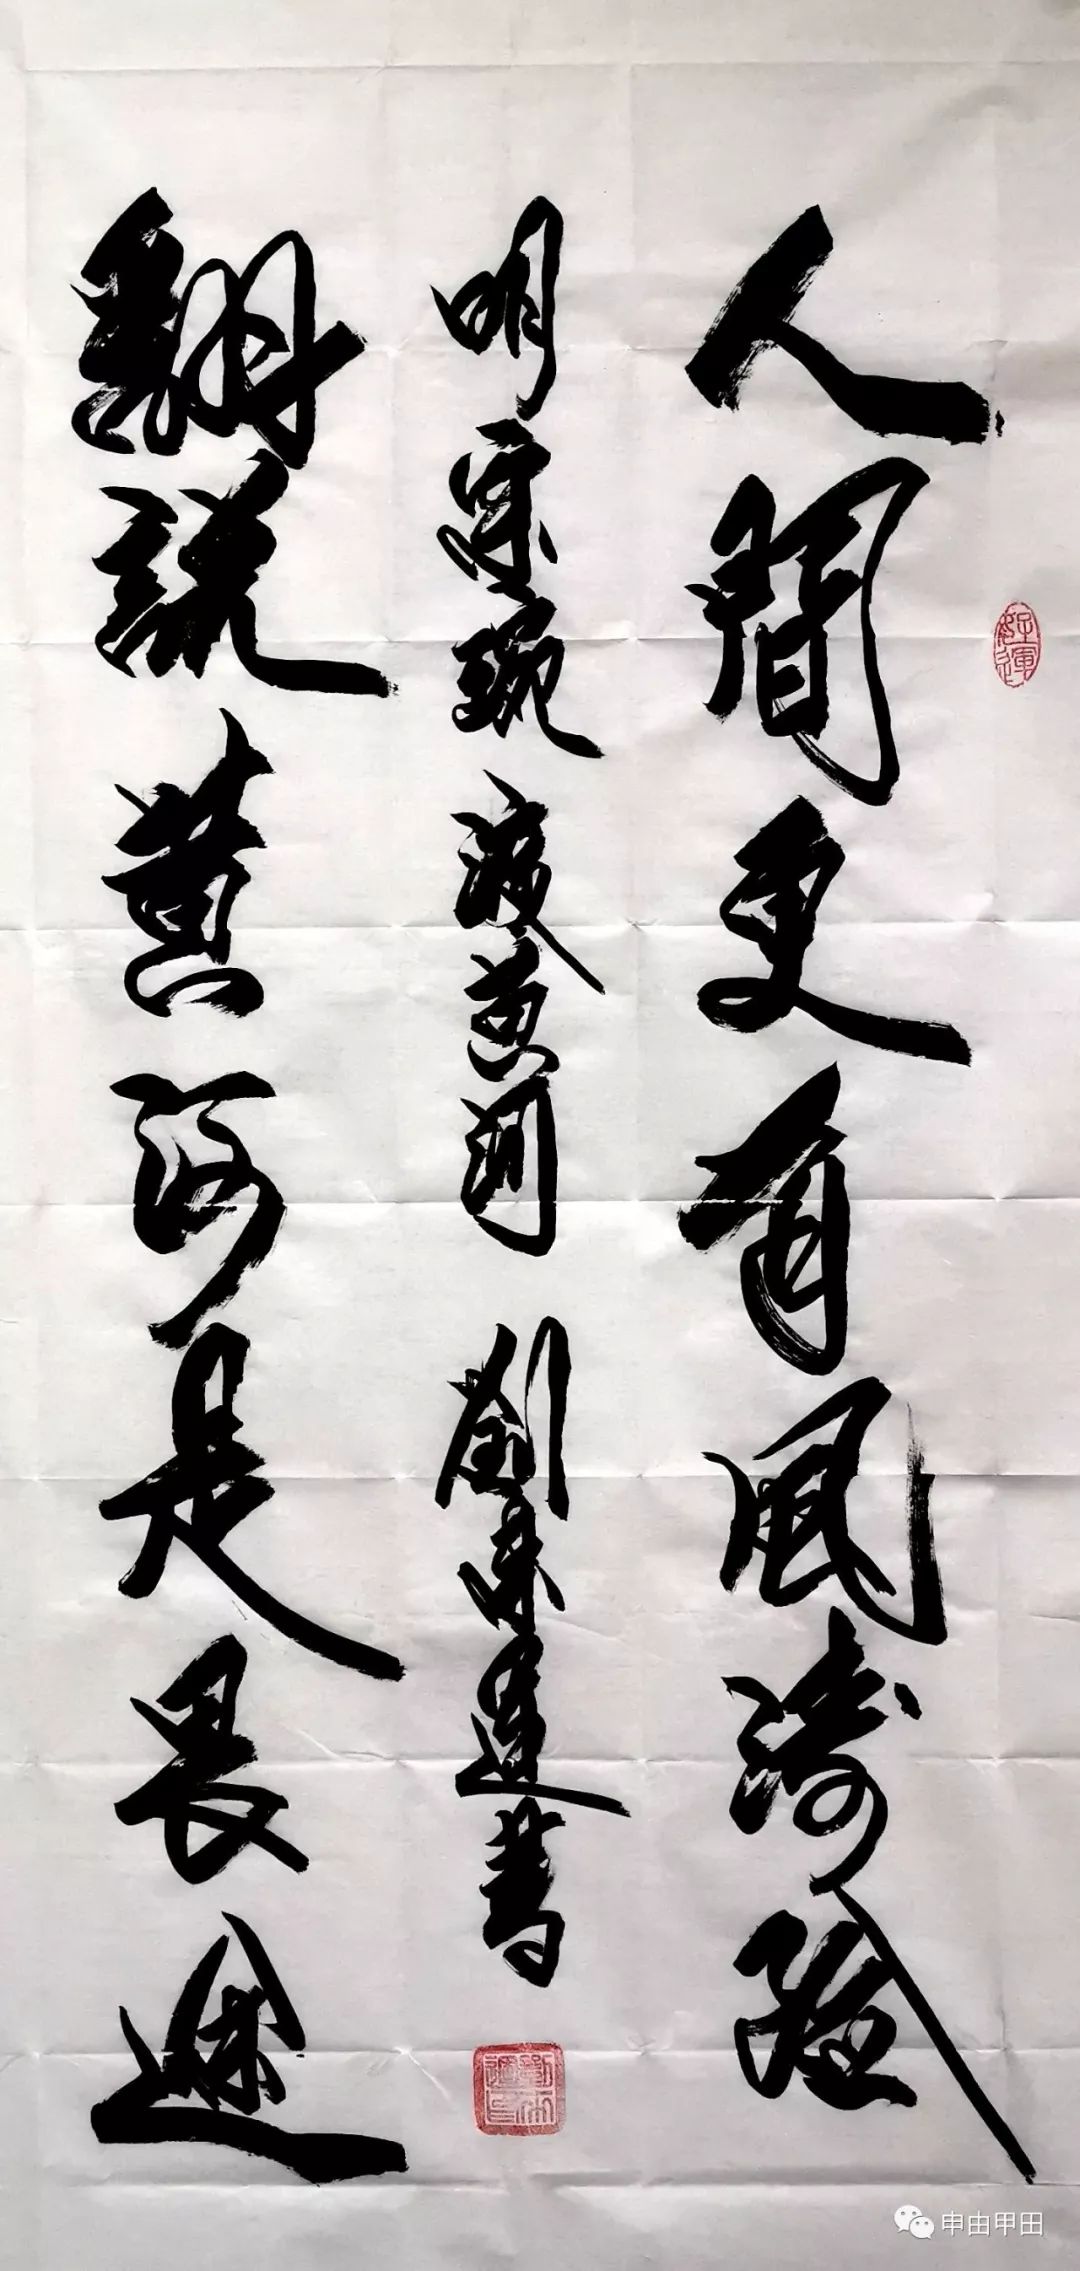 人間更有風濤險
翻說黃河是畏途
明宋琬渡黃河 劉東遠書
申由甲田